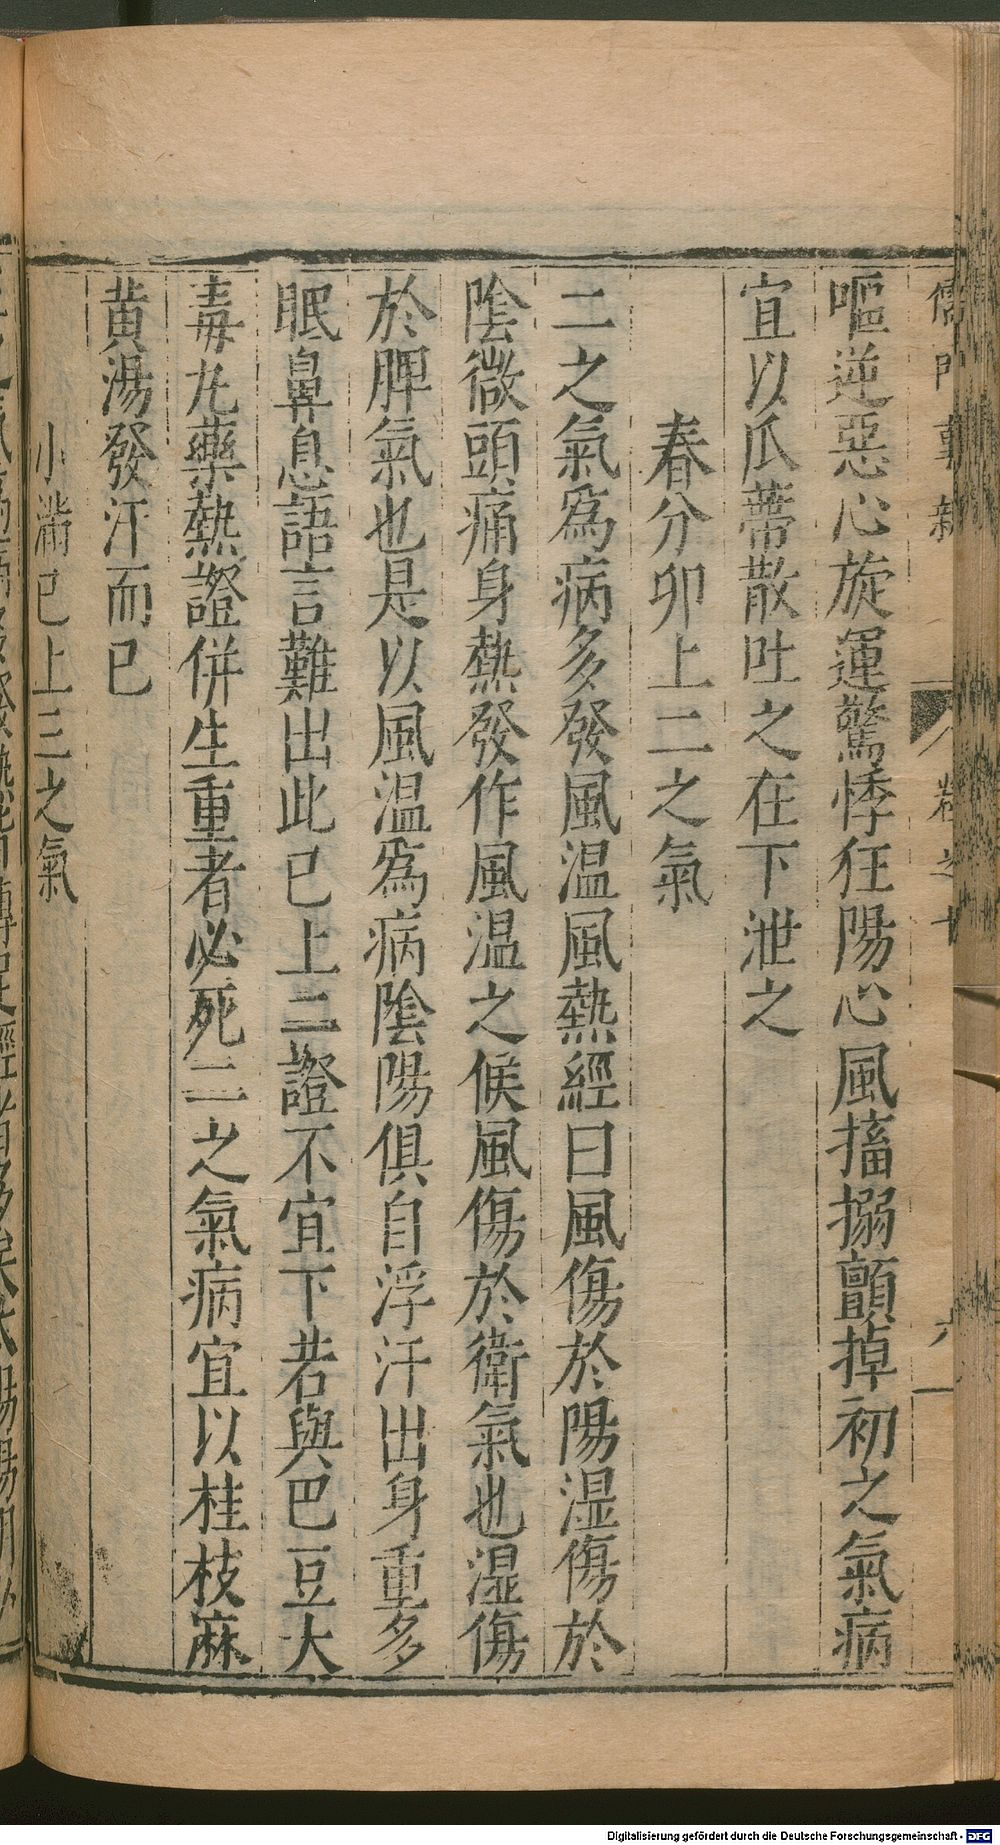 儒門事親 卷之十 六
嘔逆惡心旋運驚悸狂陽心風搐搦顫掉初之氣病
宜以瓜蒂散吐之在下泄之
春分卯上二之氣
二之氣爲病多發風溫風熱經曰風傷於陽濕傷於
陰微頭痛身熱發作風溫之候風傷於衛氣也濕傷
於脾氣也是以風溫爲病陰陽俱自浮汗出身重多
眠鼻息語言難出此已上二證不宜下若與巴豆大
毒丸藥熱證併生重者必死二之氣病宜以桂枝麻
黄湯發汗而已
小滿巳上三之氣
Digitalisierung gefördert durch die Deutsche Forschungsgemeinschaft - DFG